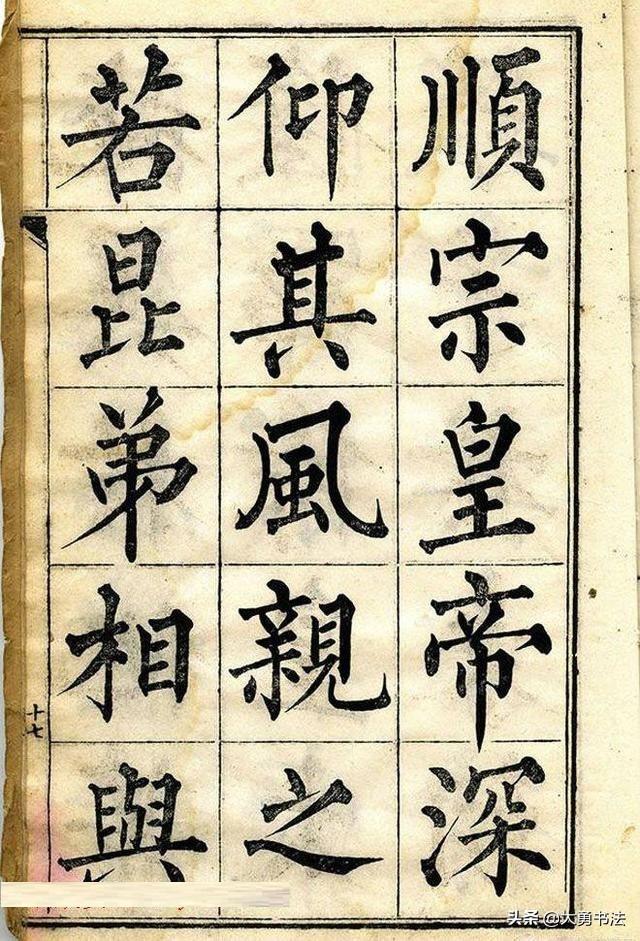 順宗皇帝深
仰其風親之
若昆弟相與
十七
头条 @大勇书法